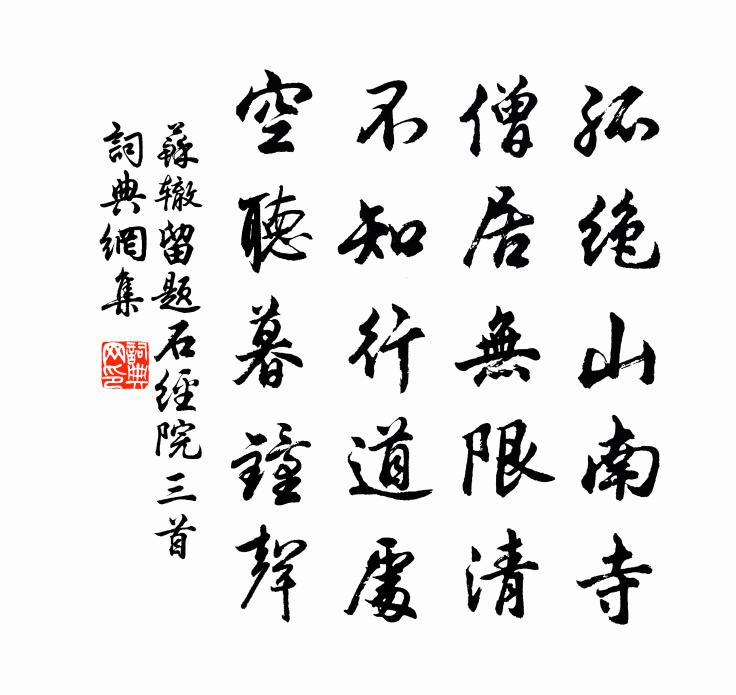 孤絶山南寺
僧居無限清
不知行道處
空聽暮鐘聲
蘇轍留題石經院三首
詞典網集
詞典網印